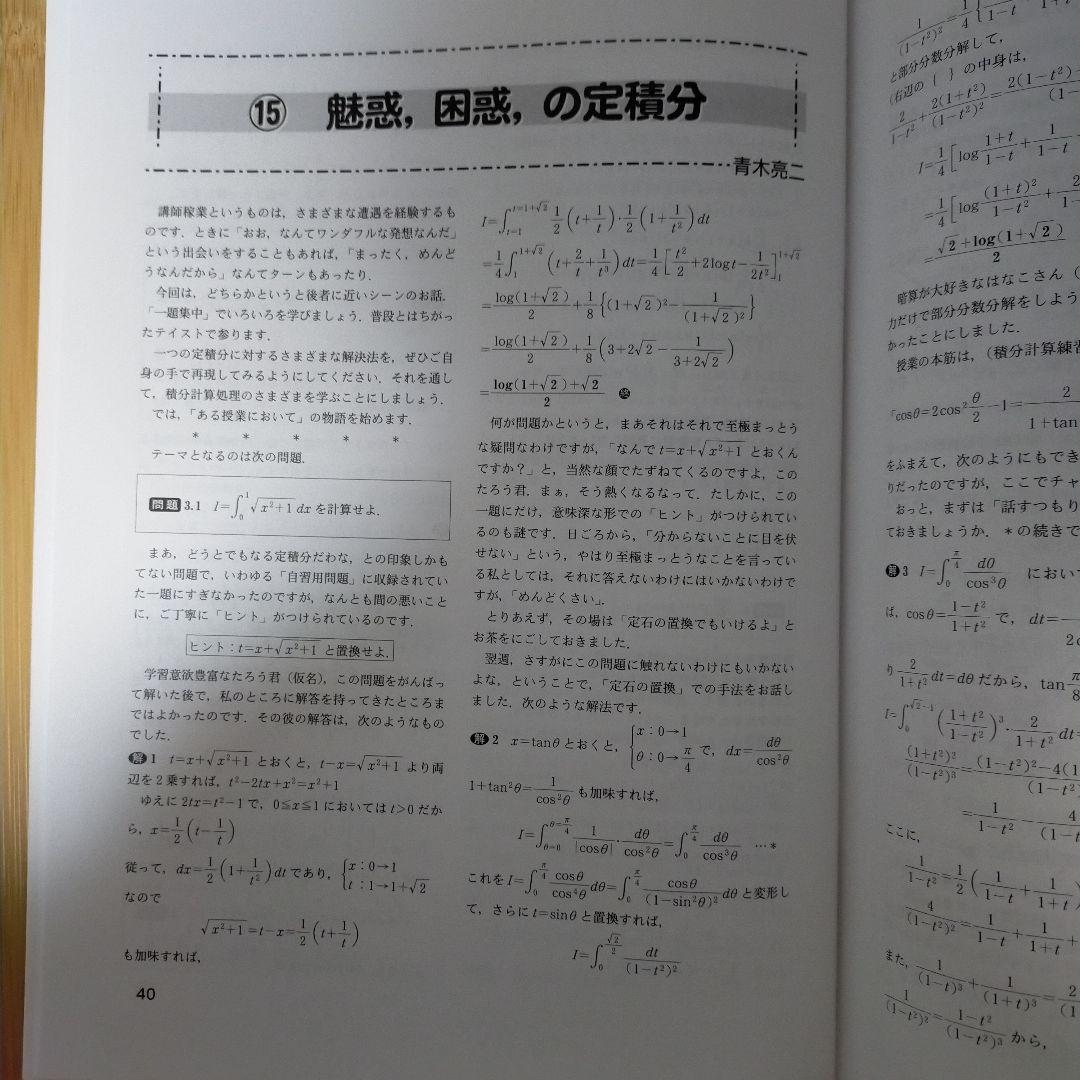 ⑮ 魅惑，困惑，の定積分
青木亮二
講師稼業というものは，さまざまな遭遇を経験するも
のです．ときに「おお，なんてワンダフルな発想なんだ」
という出会いをすることもあれば，「まったく，めんど
うなんだから」なんてターンもあったり．
今回は，どちらかというと後者に近いシーンのお話．
「一題集中」でいろいろを学びましょう．普段とはちがっ
たテイストで参ります．
一つの定積分に対するさまざまな解決法を，ぜひご自
身の手で再現してみるようにしてください．それを通し
て，積分計算処理のさまざまを学ぶことにしましょう．
では，「ある授業において」の物語を始めます．
* * * * *
テーマとなるのは次の問題．
問題 3.1 I=∫_0^1 √(x²+1) dx を計算せよ．
まあ，どうとでもなる定積分だわな，との印象しかも
てない問題で，いわゆる「自習用問題」に収録されてい
た一題にすぎなかったのですが，なんとも間の悪いこと
に，ご丁寧に「ヒント」がつけられているのです．
ヒント：t=x+√(x²+1) と置換せよ．
学習意欲豊富なたろう君（仮名），この問題をがんばっ
て解いた後で，私のところに解答を持ってきたところま
ではよかったのです．その彼の解答は，次のようなもの
でした．
解1 t=x+√(x²+1) とおくと，t−x=√(x²+1) より両
辺を2乗すれば，t²−2tx+x²=x²+1
ゆえに 2tx=t²−1で，0≦x≦1においてはt>0だか
ら，x=1/2(t−1/t)
従って，dx=1/2(1+1/t²)dtであり，{x：0→1
t：1→1+√2
なので
√(x²+1)=t−x=1/2(t+1/t)
も加味すれば，
40
I=∫_{t=1}^{t=1+√2} 1/2(t+1/t)・1/2(1+1/t²)dt
=1/4∫_1^{1+√2}(t+2/t+1/t³)dt=1/4[t²/2+2logt−1/2t²]_1^{1+√2}
=log(1+√2)/2+1/8{(1+√2)²−1/(1+√2)²}
=log(1+√2)/2+1/8(3+2√2−1/(3+2√2))
=(log(1+√2)+√2)/2 終
何が問題かというと，まあそれはそれで至極まっとう
な疑問なわけですが，「なんで t=x+√(x²+1) とおくん
ですか？」と，当然な顔でたずねてくるのですよ，この
たろう君．まぁ，そう熱くなるなって．たしかに，この
一題にだけ，意味深な形での「ヒント」がつけられてい
るのも謎です．日ごろから，「分からないことに目を伏
せない」という，やはり至極まっとうなことを言ってい
る私としては，それに答えないわけにはいかないわけで
すが，「めんどくさい」．
とりあえず，その場は「定石の置換でもいけるよ」と
お茶をにごしておきました．
翌週，さすがにこの問題に触れないわけにもいかない
よな，ということで，「定石の置換」での手法をお話し
ました．次のような解法です．
解2 x=tanθとおくと，{x：0→1
θ：0→π/4 で，dx=dθ/cos²θ
1+tan²θ=1/cos²θ も加味すれば，
I=∫_{θ=0}^{θ=π/4} 1/|cosθ|・dθ/cos²θ=∫_0^{π/4} dθ/cos³θ …*
これを I=∫_0^{π/4} cosθ/cos⁴θ dθ=∫_0^{π/4} cosθ/(1−sin²θ)² dθ と変形し
て，さらに t=sinθ と置換すれば，
I=∫_0^{√2/2} dt/(1−t²)²
と部分分数分解して，
(右辺の { } の中身は，
√2+log(1+√2)/2
暗算が大好きなはなこさん（
力だけで部分分数分解をしよう
かったことにしました．
授業の本筋は，（積分計算練習
「cosθ=2cos²θ/2−1=
をふまえて，次のようにもでき
りだったのですが，ここでチャ
おっと，まずは「話すつもり
ておきましょうか．*の続きで
解3 I=∫_0^{π/4} dθ/cos³θ におい
ば，cosθ=(1−t²)/(1+t²) で，dt=
り 2/(1+t²)dt=dθ だから，tanπ/8
I=∫_0^{√2−1}((1+t²)/(1−t²))³・2/(1+t²)dt=
ここに，
また，
1/(1−t²)²=(1−t²)/(1−t²)³ から，